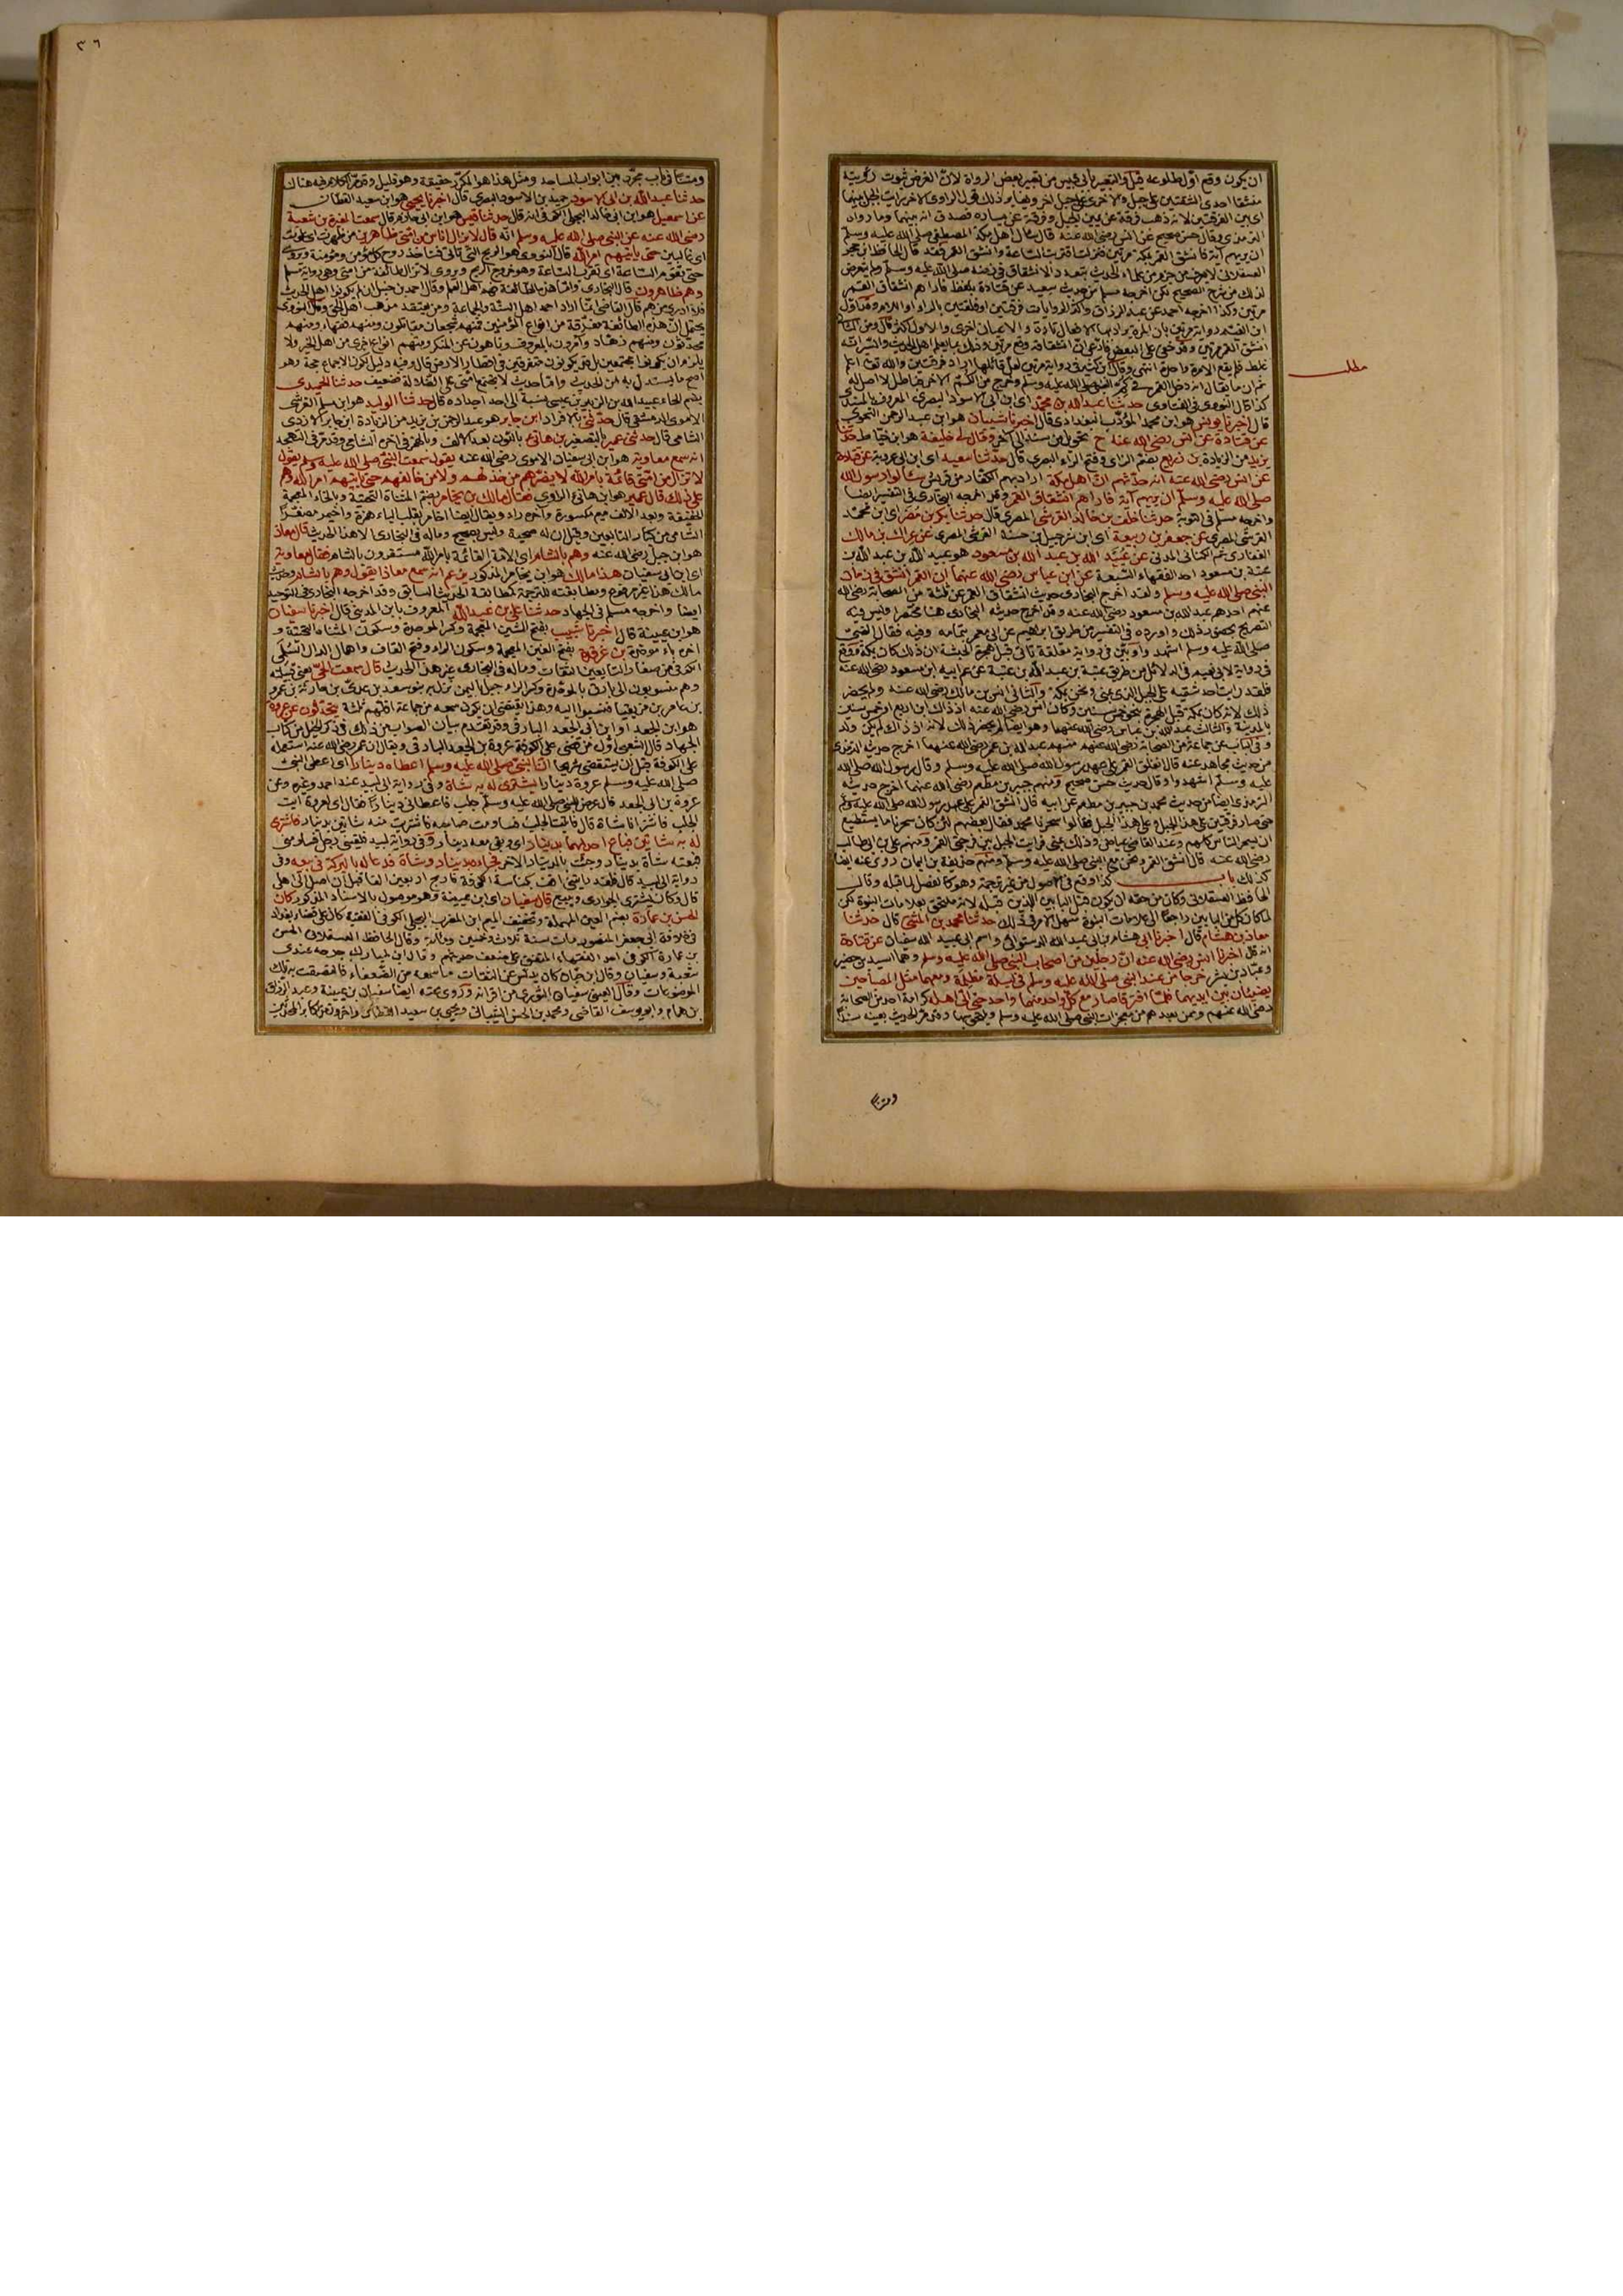 ان يكون وقع اول طلوعه فان في التعبير بابي قبيس من تعبير بعض الرواة لان الغرض ثبوت رؤيته
منشقا احدى الشقتين على جبل والاخرى على جبل آخر ولا يغاير ذلك قول الراوي الآخر رايت الجبل بينهما
اي بين الفرقتين لانه ذهب فرقة عن يمين الجبل وفرقة عن يساره فصدق انه بينهما وما رواه
الترمذي وقال حسن صحيح عن انس رضي الله عنه قال سأل اهل مكة المصطفى صلى الله عليه وسلم
ان يريهم آية فانشق القمر بمكة مرتين فنزلت اقتربت الساعة وانشق القمر فقد قال الحافظ ابن حجر
العسقلاني لا يعرف من جزم من علماء الحديث بتعدد الانشقاق في زمنه صلى الله عليه وسلم ولم يتعرض
لذلك من شرح الصحيح لكن اخرجه مسلم من حديث سعيد عن قتادة بلفظ فاراهم انشقاق القمر
مرتين وكذا اخرجه احمد عن عبد الرزاق واكثر الروايات فرقتين او فلقتين بالراء او اللام
ان المرة يراد بها الافعال تارة والاعيان اخرى والاول اكثر قال ومن الثاني
انشق القمر مرتين وقد خفي على البعض فادعى ان انشقاقه وقع مرتين وذلك مما يعلم اهل الحديث والسير انه
غلط فلم يقع الا مرة واحدة انتهى وقال ابن كثير في رواية مرتين لعل قائلها اراد فرقتين والله تعالى اعلم
ثم ان ما يقال انه دخل القمر في كم النبي صلى الله عليه وسلم وخرج من الكم الآخر فباطل لا اصل له
كذا قال النووي في الفتاوى حدثنا عبد الله بن محمد اي ابن ابي الاسود البصري المعروف بالمسندي
قال اخبرنا يونس هو ابن محمد المؤدب البغدادي قال اخبرنا شيبان هو ابن عبد الرحمن النحوي
عن قتادة عن انس رضي الله عنه ح تحويل من سند الى آخر وقال لي خليفة هو ابن خياط حدثنا
يزيد من الزيادة بن زريع بضم الزاي وفتح الراء البصري قال حدثنا سعيد اي ابن ابي عروبة عن قتادة
عن انس رضي الله عنه انه حدثهم ان اهل مكة اراد بهم الكفار من قريش سألوا رسول الله
صلى الله عليه وسلم ان يريهم آية فاراهم انشقاق القمر وقد اخرجه البخاري في التفسير ايضا
واخرجه مسلم في التوبة حدثنا خلف بن خالد القرشي المصري قال حدثنا بكر بن مضر اي ابن محمد
القرشي المصري عن جعفر بن ربيعة اي ابن شرحبيل بن حسنة القرشي المصري عن عراك بن مالك
الغفاري ثم الكناني المدني عن عبيد الله بن عبد الله بن مسعود هو عبيد الله بن عبد الله بن
عتبة بن مسعود احد الفقهاء السبعة عن ابن عباس رضي الله عنهما ان القمر انشق في زمان
النبي صلى الله عليه وسلم ولقد اخرج البخاري حديث انشقاق القمر عن ثلثة من الصحابة رضي الله
عنهم احدهم عبد الله بن مسعود رضي الله عنه وقد اخرج حديثه البخاري هنا مختصرا وليس فيه
التصريح بحضور ذلك واورده في التفسير من طريق ابراهيم عن ابي معمر بتمامه وفيه فقال النبي
صلى الله عليه وسلم اشهدوا وبين في رواية معلقة تأتي قبل هجرة الحبشة ان ذلك كان بمكة ووقع
في رواية لابي نعيم في الدلائل من طريق عتبة بن عبد الله بن عتبة عن عم ابيه ابن مسعود رضي الله عنه
فلقد رايت احد شقيه على الجبل الذي بمنى ونحن بمكة والثاني انس بن مالك رضي الله عنه ولم يحضر
ذلك لانه كان بمكة قبل الهجرة بنحو خمس سنين وكان انس رضي الله عنه اذ ذاك ابن اربع او خمس سنين
بالمدينة والثالث عبد الله بن عباس رضي الله عنهما وهو ايضا لم يحضر ذلك لانه اذ ذاك لم يكن ولد
وفي الباب عن جماعة من الصحابة رضي الله عنهم منهم عبد الله بن عمر رضي الله عنهما اخرج حديثه الترمذي
من حديث مجاهد عنه قال انفلق القمر على عهد رسول الله صلى الله عليه وسلم وقال رسول الله صلى الله
عليه وسلم اشهدوا وقال حديث حسن صحيح ومنهم جبير بن مطعم رضي الله عنهما اخرج حديثه
الترمذي ايضا من حديث محمد بن جبير بن مطعم عن ابيه قال انشق القمر على عهد رسول الله صلى الله عليه وسلم
حتى صار فرقتين على هذا الجبل وعلى هذا الجبل فقالوا سحرنا محمد فقال بعضهم لئن كان سحرنا ما يستطيع
ان يسحر الناس كلهم وعند القاضي عياض وذلك بمنى فرايت الجبل بين فرجتي القمر ومنهم علي بن ابي طالب
رضي الله عنه قال انشق القمر ونحن مع النبي صلى الله عليه وسلم ومنهم حذيفة بن اليمان روي عنه ايضا
كذلك باب كذا وقع في الاصول من غير ترجمة وهو كالفصل لما قبله وقال
الحافظ العسقلاني وكان من حقه ان يكون قبل البابين اللذين قبله لانه ملتحق بعلامات النبوة لكن
لما كان كل من البابين راجعا الى علامات النبوة سهل الامر في ذلك حدثنا محمد بن المثنى قال حدثنا
معاذ بن هشام قال اخبرنا ابي هشام بن ابي عبد الله الدستوائي واسم ابي عبد الله سفيان عن قتادة
انه قال اخبرنا انس رضي الله عنه ان رجلين من اصحاب النبي صلى الله عليه وسلم وهما اسيد بن حضير
وعباد بن بشر خرجا من عند النبي صلى الله عليه وسلم في ليلة مظلمة ومعهما مثل المصباحين
يضيئان بين ايديهما فلما افترقا صار مع كل واحد منهما واحد حتى اتى اهله كرامة احد من الصحابة
رضي الله عنهم ومن بعدهم من معجزات النبي صلى الله عليه وسلم ويلتحق بها وقد مر الحديث بعينه سندا
ومتنا
مطلب
٣٦
ومتنا في باب مجرد بين ابواب المساجد ومثل هذا هو المكرر حقيقة وهو قليل وقد مر الكلام فيه هناك
حدثنا عبد الله بن ابي الاسود حميد بن الاسود البصري قال اخبرنا يحيى هو ابن سعيد القطان
عن اسمعيل هو ابن ابي خالد البجلي انه قال حدثنا قيس هو ابن ابي حازم قال سمعت المغيرة بن شعبة
رضي الله عنه عن النبي صلى الله عليه وسلم انه قال لا يزال اناس من امتي ظاهرين من ظهرت اي علوت
اي غالبين حتى يأتيهم امر الله قال النووي هو الريح التي تأتي فتأخذ روح كل مؤمن ومؤمنة ويروى
حتى تقوم الساعة اي تقرب الساعة وهو خروج الريح ويروى لا تزال طائفة من امتي وهي رواية مسلم
وهم ظاهرون قال البخاري واما هذه الطائفة فهم اهل العلم وقال احمد بن حنبل ان لم يكونوا اهل الحديث
فلا ادري من هم قال القاضي انما اراد احمد اهل السنة والجماعة ومن يعتقد مذهب اهل الحق وقال النووي
يحتمل ان هذه الطائفة مفرقة من انواع المؤمنين فمنهم شجعان مقاتلون ومنهم فقهاء ومنهم
محدثون ومنهم زهاد وآمرون بالمعروف وناهون عن المنكر ومنهم انواع اخرى من اهل الخير ولا
يلزم ان يكونوا مجتمعين بل قد يكونون متفرقين في اقطار الارض قال وفيه دليل لكون الاجماع حجة وهو
اصح ما يستدل به من الحديث واما حديث لا يجتمع امتي على الضلالة فضعيف حدثنا الحميدي
بضم الحاء عبد الله بن الزبير بن عيسى نسبة الى احد اجداده قال حدثنا الوليد هو ابن مسلم القرشي
الاموي الدمشقي قال حدثني بالافراد ابن جابر هو عبد الرحمن بن يزيد من الزيادة ابن جابر الازدي
الشامي قال حدثني عمير بالتصغير بن هانئ بالنون بعد الالف وبالهمز في آخره الشامي وقد مر في التهجد
انه سمع معاوية هو ابن ابي سفيان الاموي رضي الله عنه يقول سمعت النبي صلى الله عليه وسلم يقول
لا تزال من امتي قائمة بامر الله لا يضرهم من خذلهم ولا من خالفهم حتى يأتيهم امر الله وهم
على ذلك قال عمير هو ابن هانئ الراوي فقال مالك بن يخامر بضم المثناة التحتية وبالخاء المعجمة
الخفيفة وبعد الالف ميم مكسورة وآخره راء ويقال ايضا اخامر بقلب الياء همزة واخيمر مصغرا
الشامي من كبار التابعين وقيل ان له صحبة وليس بصحيح وماله في البخاري الا هذا الحديث قال معاذ
هو ابن جبل رضي الله عنه وهم بالشام اي الامة القائمة بامر الله مستقرون بالشام فقال معاوية
اي ابن ابي سفيان هذا مالك هو ابن يخامر المذكور يزعم انه سمع معاذا يقول وهم بالشام وحديث
مالك هذا غير مرفوع ومطابقته للترجمة كمطابقة الحديث السابق وقد اخرجه البخاري في التوحيد
ايضا واخرجه مسلم في الجهاد حدثنا علي بن عبد الله المعروف بابن المديني قال اخبرنا سفيان
هو ابن عيينة قال اخبرنا شبيب بفتح الشين المعجمة وكسر الموحدة وسكون المثناة التحتية و
آخره باء موحدة بن غرقدة بفتح الغين المعجمة وسكون الراء وفتح القاف واهمال الدال السلمي
الكوفي من صغار التابعين الثقات وماله في البخاري غير هذا الحديث قال سمعت الحي يعني قبيلته
وهم منسوبون الى بارق بالموحدة وكسر الراء جبل باليمن نزل به بنو سعد بن عدي بن حارثة بن عمرو
بن عامر بن مزيقيا فنسبوا اليه وهذا يقتضي ان يكون سمعه من جماعة اقلهم ثلثة يتحدثون عن عروة
هو ابن الجعد او ابن ابي الجعد البارقي وقد تقدم بيان الصواب من ذلك في ذكر الخيل من كتاب
الجهاد قال الشعبي اول من قضى على الكوفة عروة بن الجعد البارقي ويقال ان عمر رضي الله عنه استعمله
على الكوفة قبل ان يستقضي شريحا ان النبي صلى الله عليه وسلم اعطاه دينارا اي اعطى النبي
صلى الله عليه وسلم عروة دينارا ليشتري له به شاة وفي رواية ابي لبيد عند احمد وغيره عن
عروة بن ابي الجعد قال عرض للنبي صلى الله عليه وسلم جلب فاعطاني دينارا فقال اي عروة ائت
الجلب فاشتر لنا شاة قال فاتيت الجلب فساومت صاحبه فاشتريت منه شاتين بدينار فاشترى
له به شاتين فباع احدهما بدينار اي وبقي معه دينار وفي رواية لبيد فلقيني رجل فساومني
فبعته شاة بدينار وجئت بالدينار الآخر فجاءه بدينار وشاة فدعا له بالبركة في بيعه وفي
رواية ابي لبيد قال فلقد رايتني اقف بكناسة الكوفة فاربح اربعين الفا قبل ان اصل الى اهلي
قال وكان يشتري الجواري ويبيع قال سفيان اي ابن عيينة وهو موصول بالاسناد المذكور كان
الحسن بن عمارة بضم العين المهملة وتخفيف الميم ابن المضرب البجلي الكوفي الفقيه كان على قضاء بغداد
في خلافة ابي جعفر المنصور مات سنة ثلاث وخمسين ومائة وقال الحافظ العسقلاني الحسن
بن عمارة الكوفي احد الفقهاء المتفق على ضعف حديثهم وقال ابن المبارك جرحه عندي
شعبة وسفيان وقال ابن حبان كان يدلس عن الثقات ما سمعه من الضعفاء فالتصقت به تلك
الموضوعات وقال العيني سفيان الثوري من اقرانه وروى عنه ايضا سفيان بن عيينة وعبد الرزاق
بن همام وابو يوسف القاضي ومحمد بن الحسن الشيباني ويحيى بن سعيد القطان وآخرون من كابر المحدثين